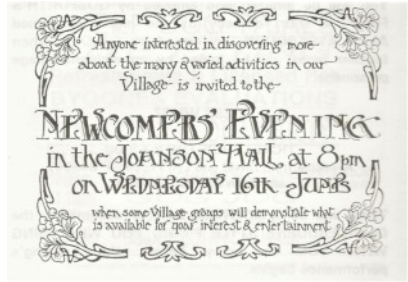 Anyone interested in discovering more
about the many & varied activities in our
Village is invited to the
NEWCOMERS' EVENING
in the JOHNSON HALL, at 8pm
on WEDNESDAY 16th JUNE
when some Village groups will demonstrate what
is available for your interest & entertainment